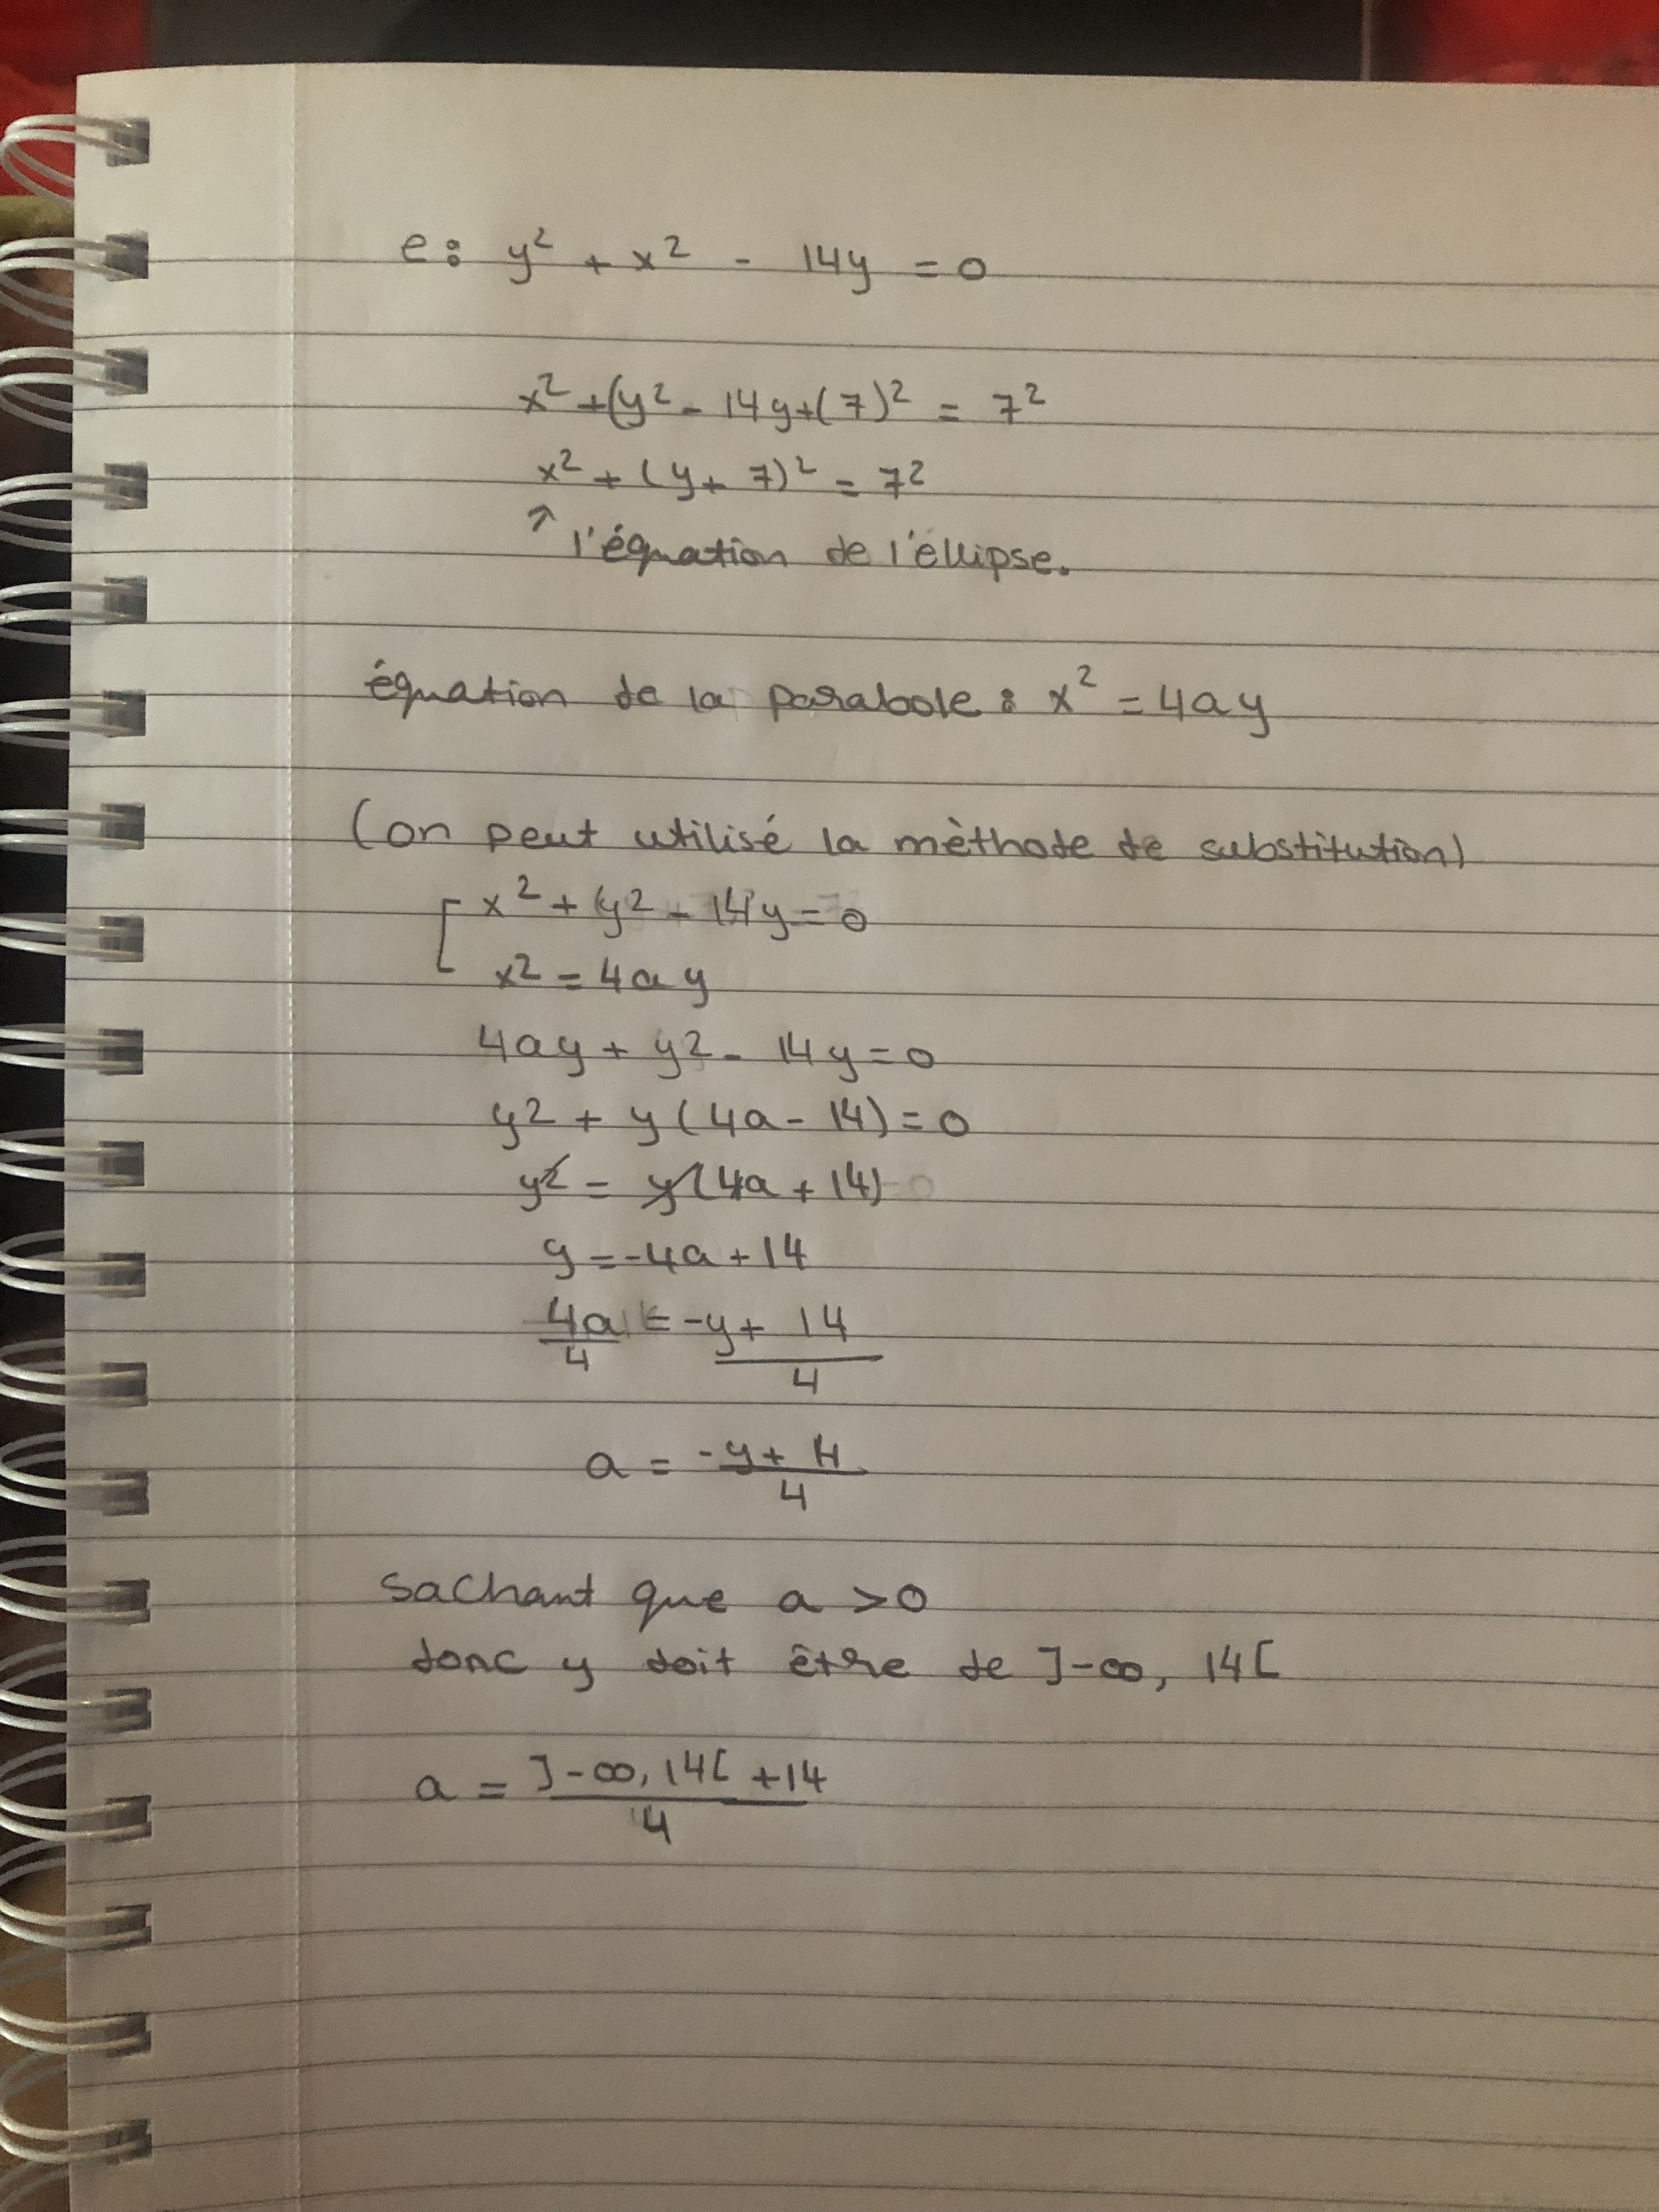 e: y² + x² - 14y = 0
x² + (y² - 14y + (7)² = 7²
x² + (y + 7)² = 7²
↗ l'équation de l'éllipse.
équation de la parabole : x² = 4ay
(on peut utilisé la mèthode de substitution)
x² + (y² - 14y = 0
x² = 4ay
4ay + y² - 14y = 0
y² + y(4a - 14) = 0
y² = y(4a + 14)
y = -4a + 14
4a/4 = -y + 14/4
a = -y + 14/4
sachant que a > 0
donc y doit être de ]-∞, 14[
a = ]-∞, 14[ + 14/4